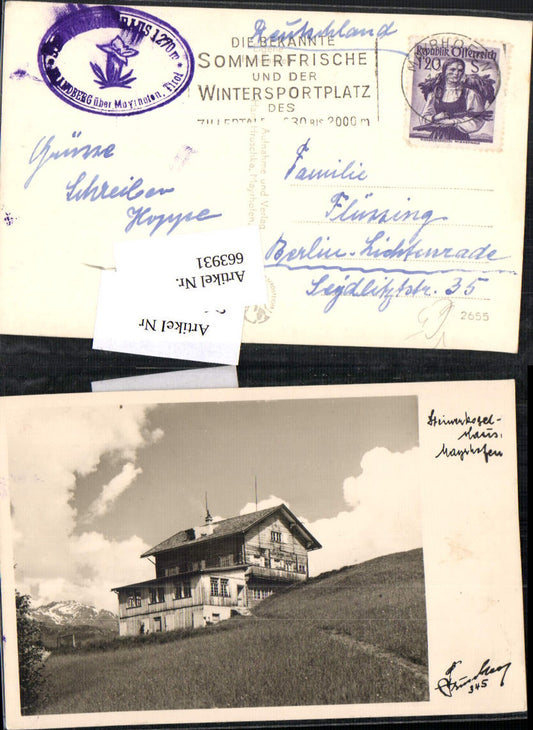 1270 m
über Mayrhofen, Tirol
DIE BEKANNTE
SOMMERFRISCHE
UND DER
WINTERSPORTPLATZ
DES
630 BIS 2000 m
Deutschland
Republik Österreich
1.20 S
Grüsse
Schreiben
Hoppe
Aufnahme und Verlag
Mayrhofen
Familie
Flüssing
Berlin-Lichtenrade
Seydlitzstr. 35
2655
Artikel Nr.
663931
Artikel Nr
Steinerkogel-
Haus.
Mayrhofen
345